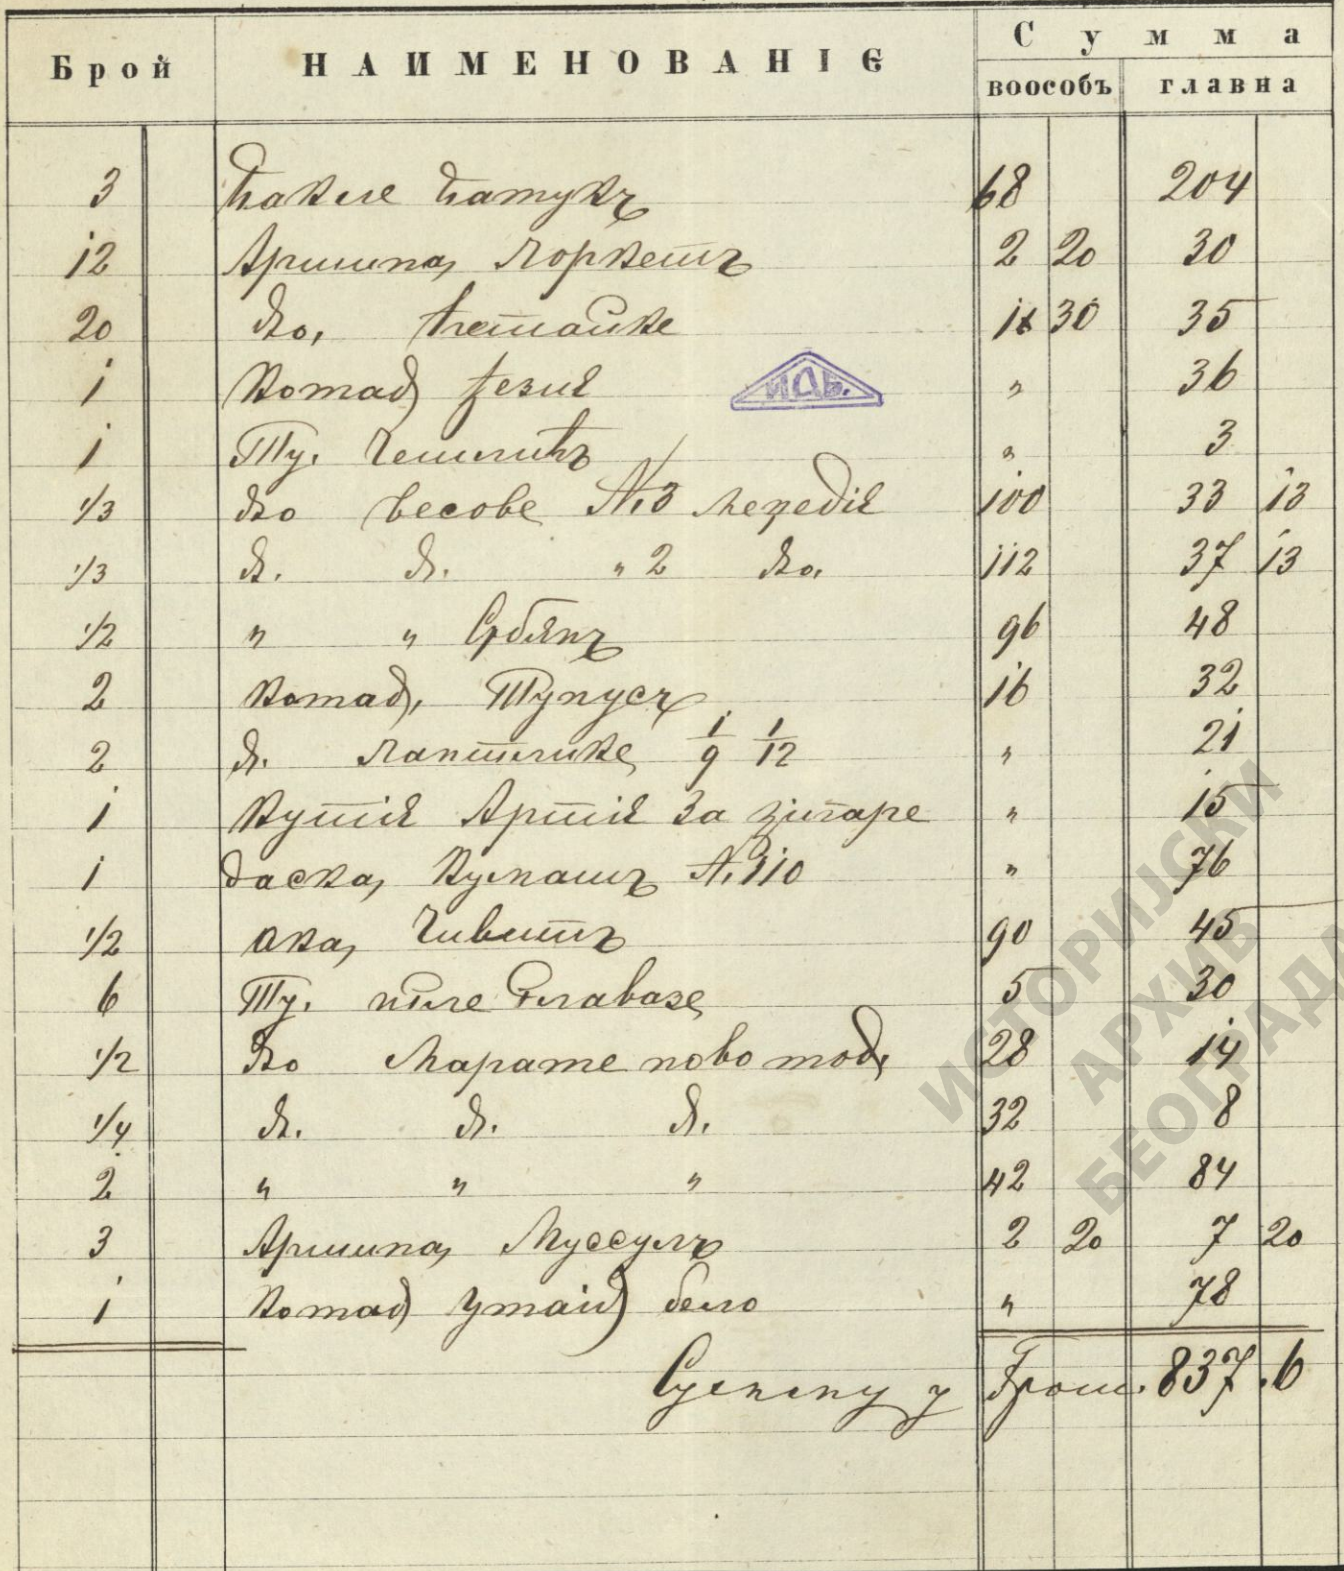 Брой НАИМЕНОВАНІЄ Сумма
воособъ главна
3 Пакле Памукъ 68 204
12 Аршина, Поркетъ 2 20 30
20 до, 1 30 35
1 комад, фезић " 36
1 Ту. " 3
1/3 до весове №3 100 33 13
1/3 д. д. " 2 до, 112 37 13
1/2 " " Србліянъ 96 48
2 комад, 16 32
2 д. 1/9 1/12 " 21
1 Кутіѣ Артіѣ за цигаре " 15
1 даска, Кумашъ №110 " 76
1/2 ока, Чивитъ 90 45
6 Ту. 5 30
1/2 до Мараме ново мод, 28 14
1/4 д. д. д. 32 8
2 " " " 42 84
3 Аршина, Муссулъ 2 20 7 20
1 комад бело " 78
у Грош. 837.6
ИАБ.
ИСТОРИЈСКИ
АРХИВ
БЕОГРАДА